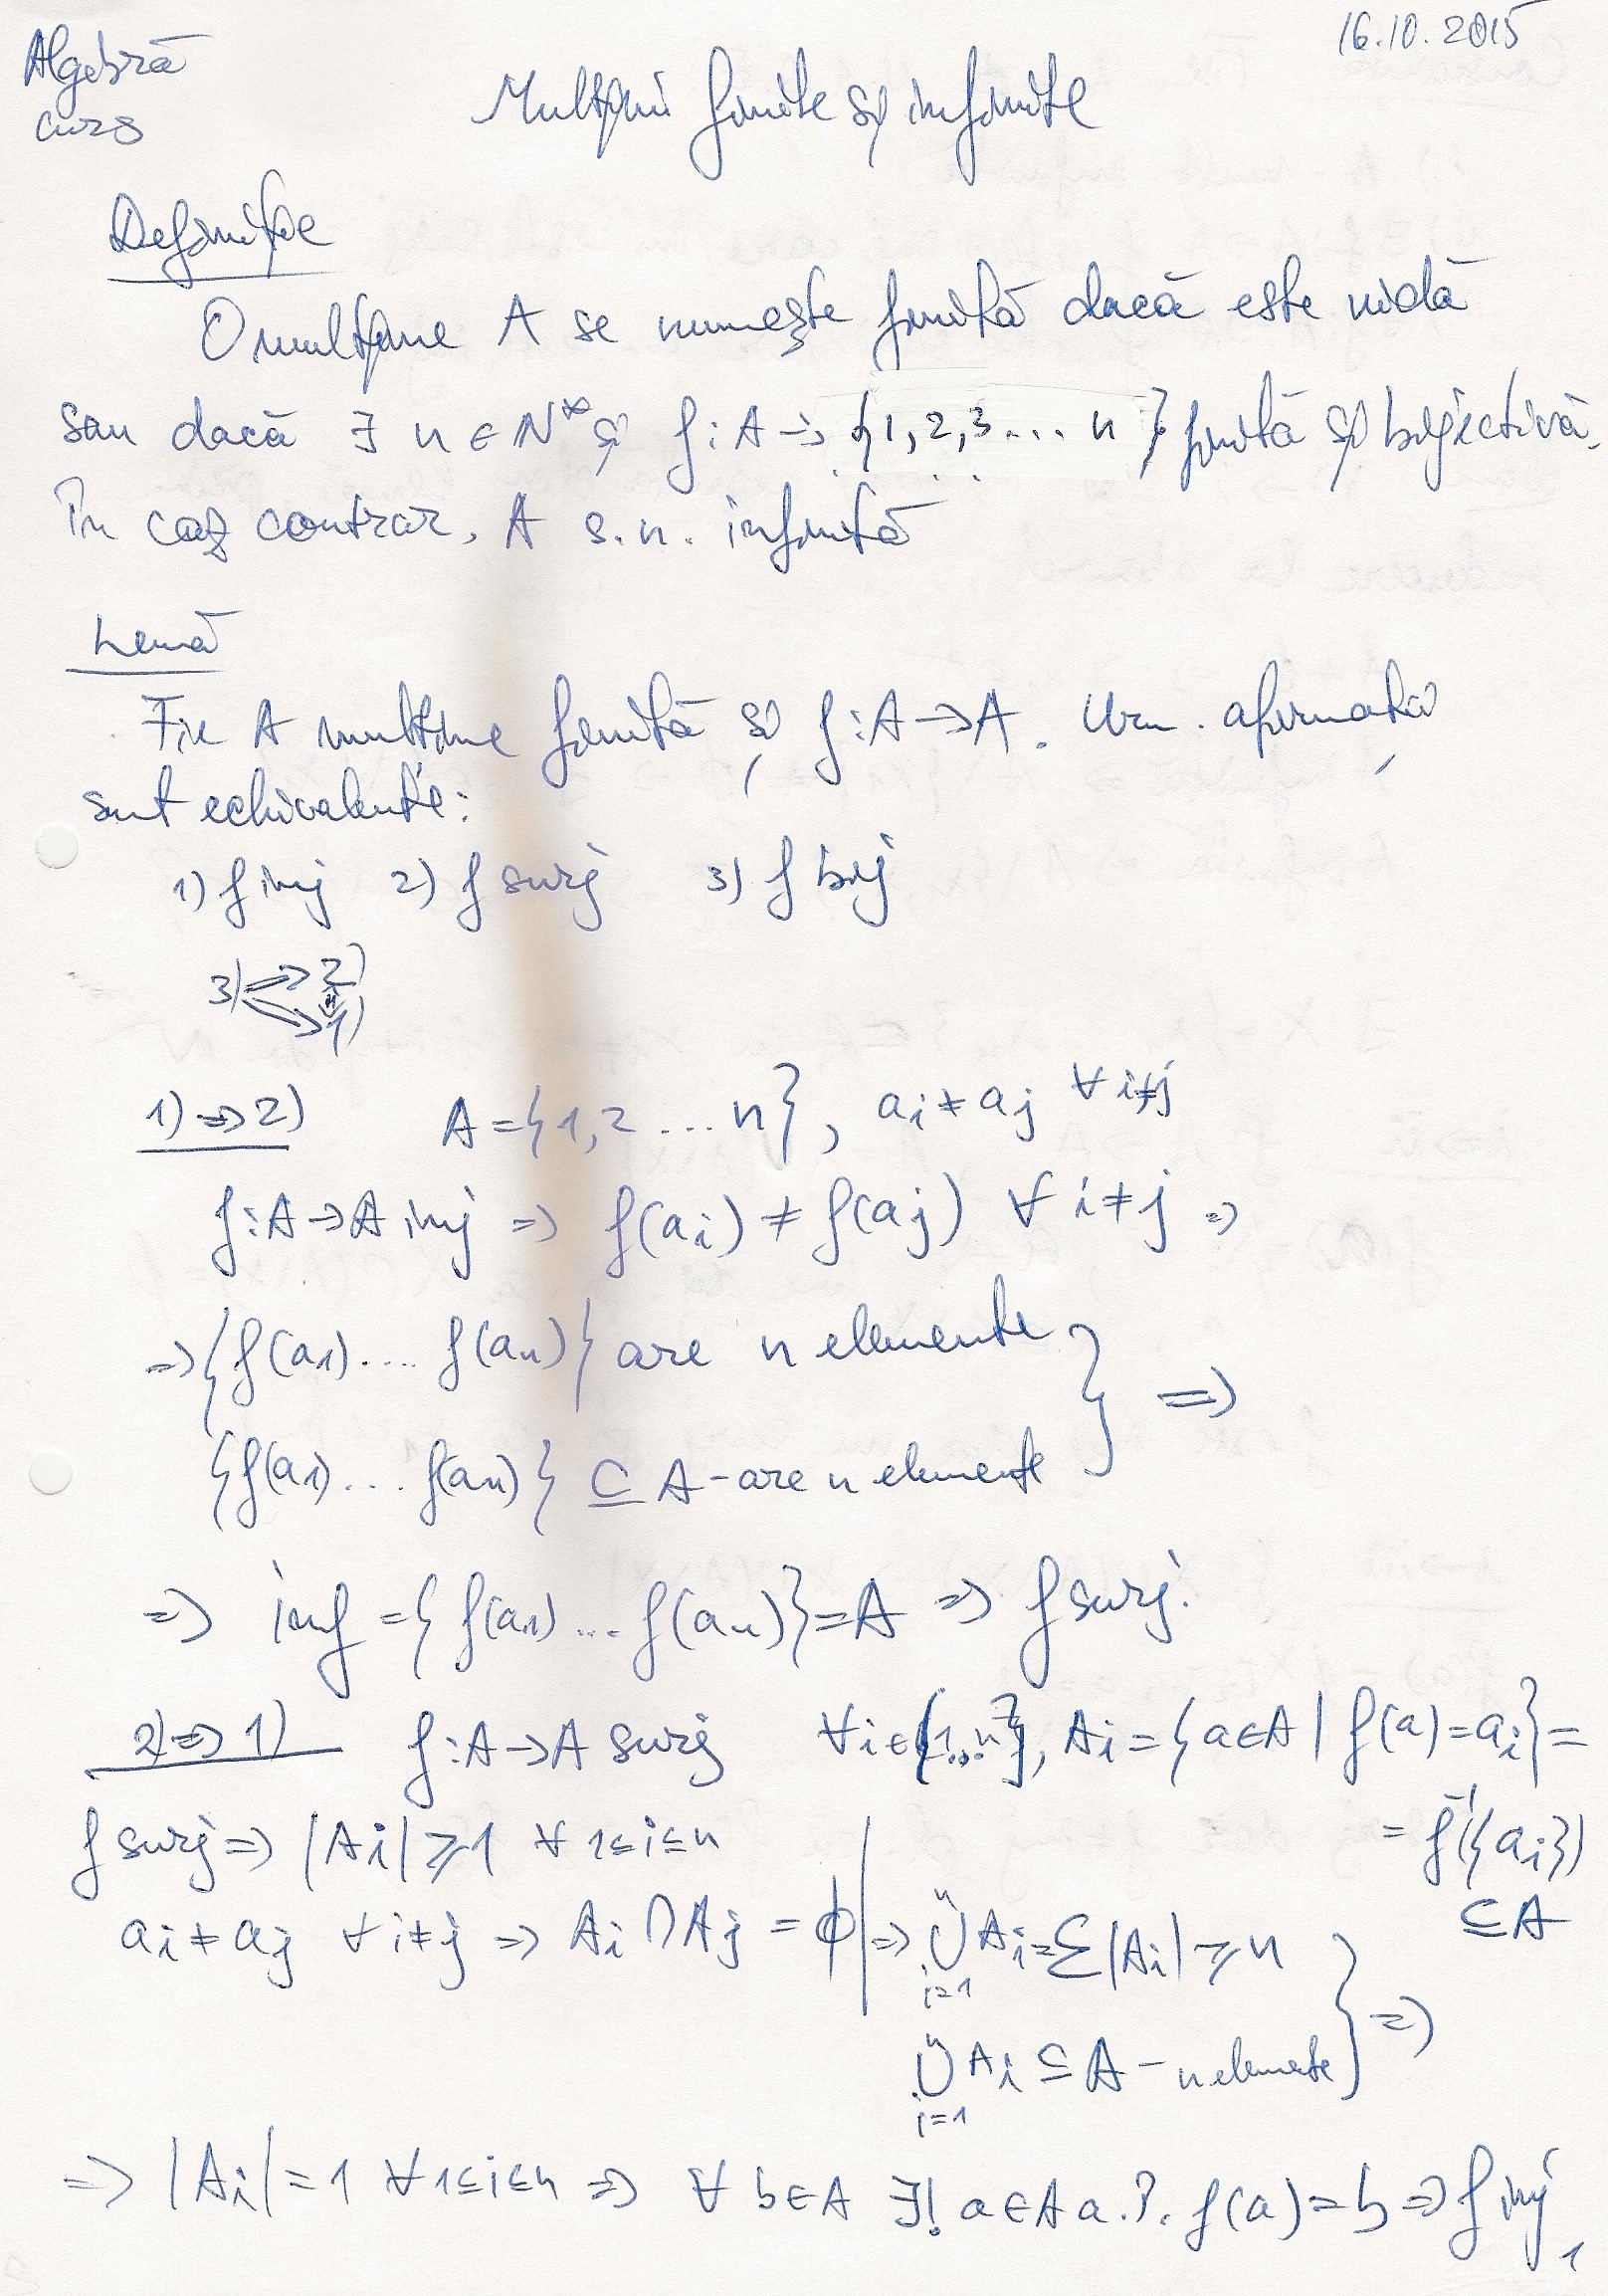 Algebră
curs
16.10.2015
Mulțimi finite și infinite
Definiție
O mulțime A se numește finită dacă este vidă
sau dacă ∃ n ∈ N* și f : A → {1, 2, 3 ... n} finită și bijectivă.
În caz contrar, A s.n. infinită
Lemă
Fie A mulțime finită și f : A → A. Urm. afirmații
sunt echivalente:
1) f inj 2) f surj 3) f bij
3) ⇒ 2)
⇒ 1)
1) ⇒ 2) A = {1, 2 ... n}, ai ≠ aj ∀ i ≠ j
f : A → A inj ⇒ f(ai) ≠ f(aj) ∀ i ≠ j ⇒
⇒ {f(a1) .... f(an)} are n elemente
{f(a1) ... f(an)} ⊆ A - are n elemente } ⇒
⇒ imf = {f(a1) ... f(an)} = A ⇒ f surj.
2) ⇒ 1) f : A → A surj ∀ i ∈ {1...n}, Ai = {a ∈ A | f(a) = ai} =
= f⁻¹({ai})
⊆ A
f surj ⇒ |Ai| ≥ 1 ∀ 1 ≤ i ≤ n
ai ≠ aj ∀ i ≠ j ⇒ Ai ∩ Aj = ϕ | ⇒ ⋃ⁿᵢ₌₁ Ai = Σ|Ai| ≥ n
⋃ⁿᵢ₌₁ Ai ⊆ A - n elemente } ⇒
⇒ |Ai| = 1 ∀ 1 ≤ i ≤ n ⇒ ∀ b ∈ A ∃! a ∈ A a.î. f(a) = b ⇒ f inj
1